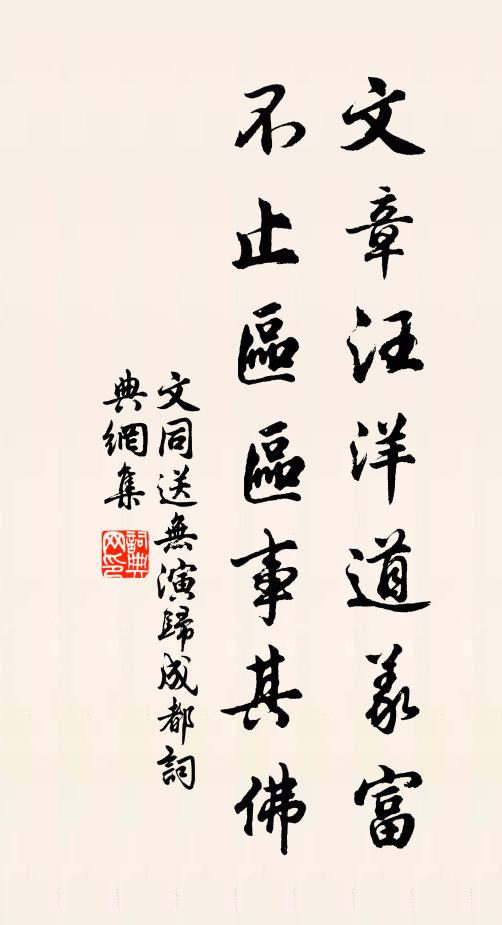 文章汪洋道義富
不止區區事其佛
文同送無演歸成都詞
典網集
詞典
网印